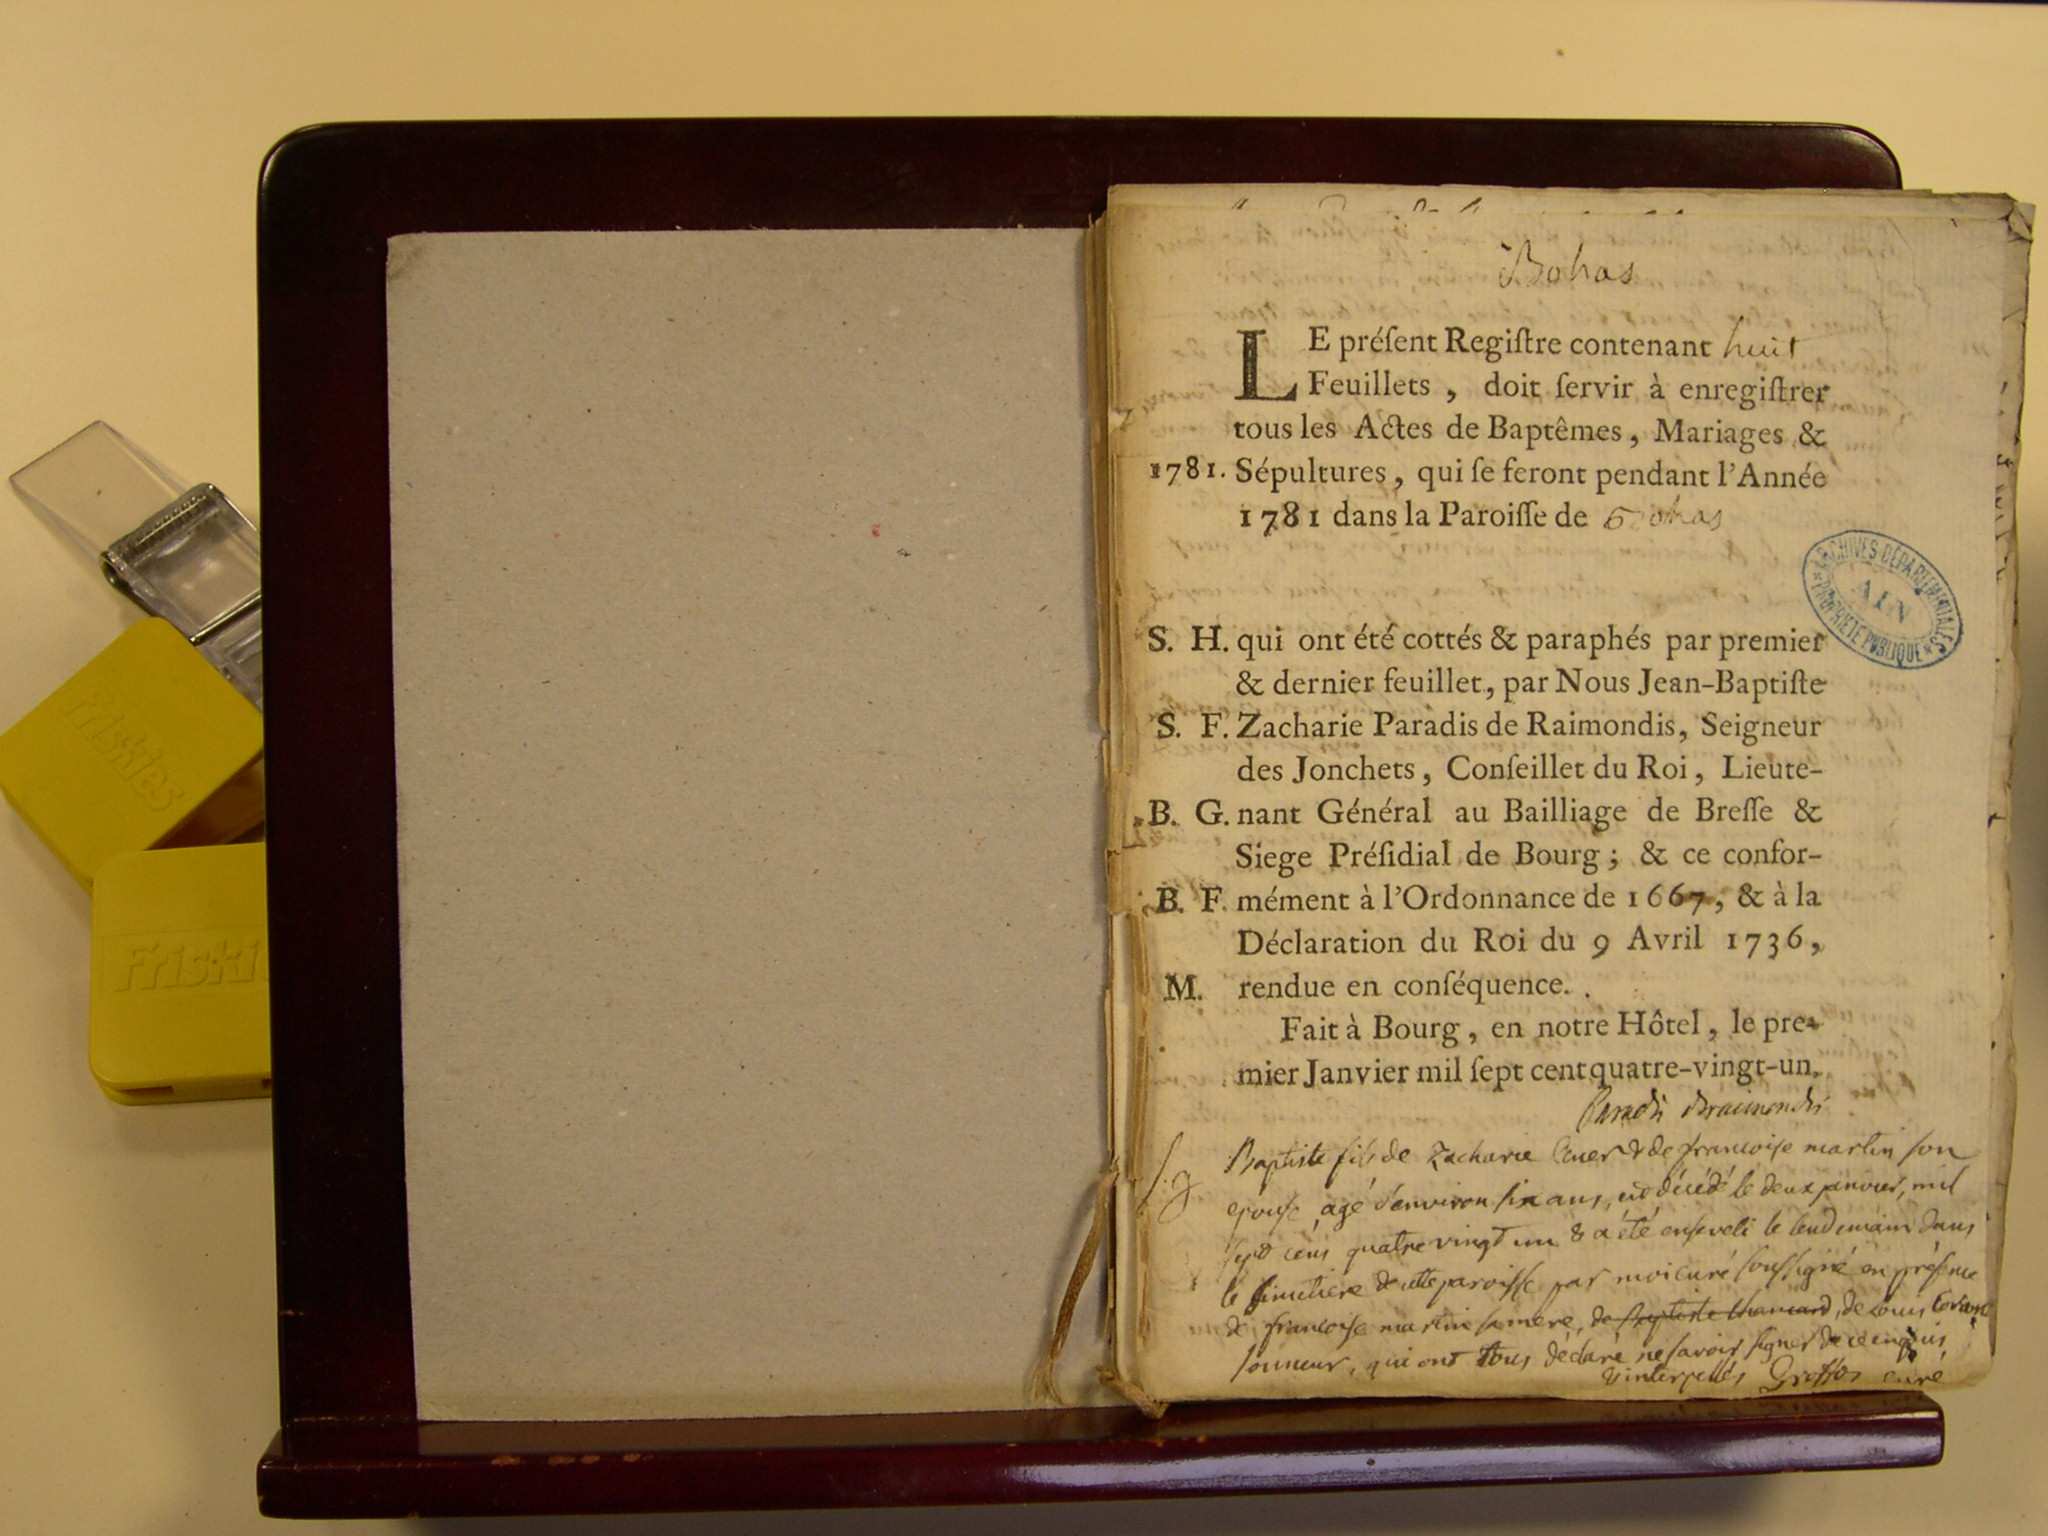 Bohas
LE préſent Regiſtre contenant huit
Feuillets, doit ſervir à enregiſtrer
tous les Actes de Baptêmes, Mariages &
1781. Sépultures, qui ſe feront pendant l'Année
1781 dans la Paroiſſe de Bohas
ARCHIVES DÉPARTEMENTALES
AIN
* PROPRIÉTÉ PUBLIQUE *
S. H. qui ont été cottés & paraphés par premier
& dernier feuillet, par Nous Jean-Baptiſte
S. F. Zacharie Paradis de Raimondis, Seigneur
des Jonchets, Conſeillet du Roi, Lieute-
B. G. nant Général au Bailliage de Breſſe &
Siege Préſidial de Bourg; & ce confor-
B. F. mément à l'Ordonnance de 1667, & à la
Déclaration du Roi du 9 Avril 1736,
M. rendue en conſéquence.
Fait à Bourg, en notre Hôtel, le pre-
mier Janvier mil ſept cent quatre-vingt-un.
Paradis Draimondis
S. g Baptiste fils de Zacharie & de francoise martin son
epouse, agé d'environ six ans, est décédé le deux janvier, mil
sept cens quatre vingt un & a été enseveli le lendemain dans
le simetiere de cette paroisse par moi curé soussigné en présence
de francoise martin sa mere, de Baptiste, de Louis
sonneur, qui ont tous déclaré ne savoir signer de ce enquis
& interpellés curé
Friskies
Friski